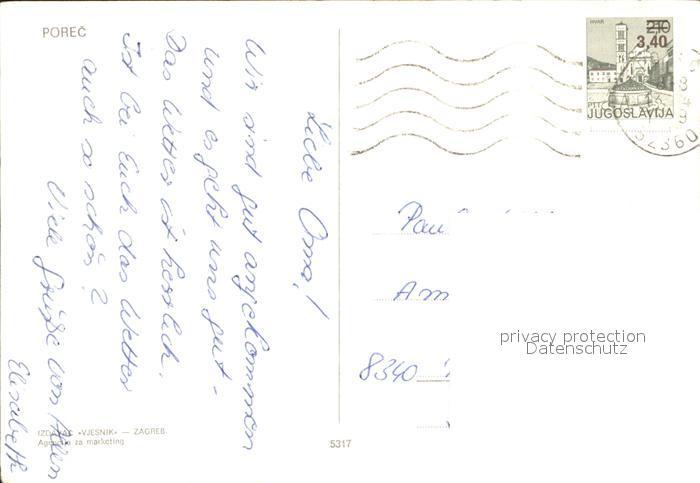 POREČ
Liebe Oma!
Wir sind gut angekommen
und es geht uns gut.
Das Wetter ist herrlich.
Ist bei Euch das Wetter
auch so schön?
Viele Grüße von Allen
Elisabeth
IZDAVAČ «VJESNIK» — ZAGREB
Agencija za marketing
5317
HVAR
2,10
3,40
PTT
JUGOSLAVIJA
52360
Am
8340
privacy protection
Datenschutz